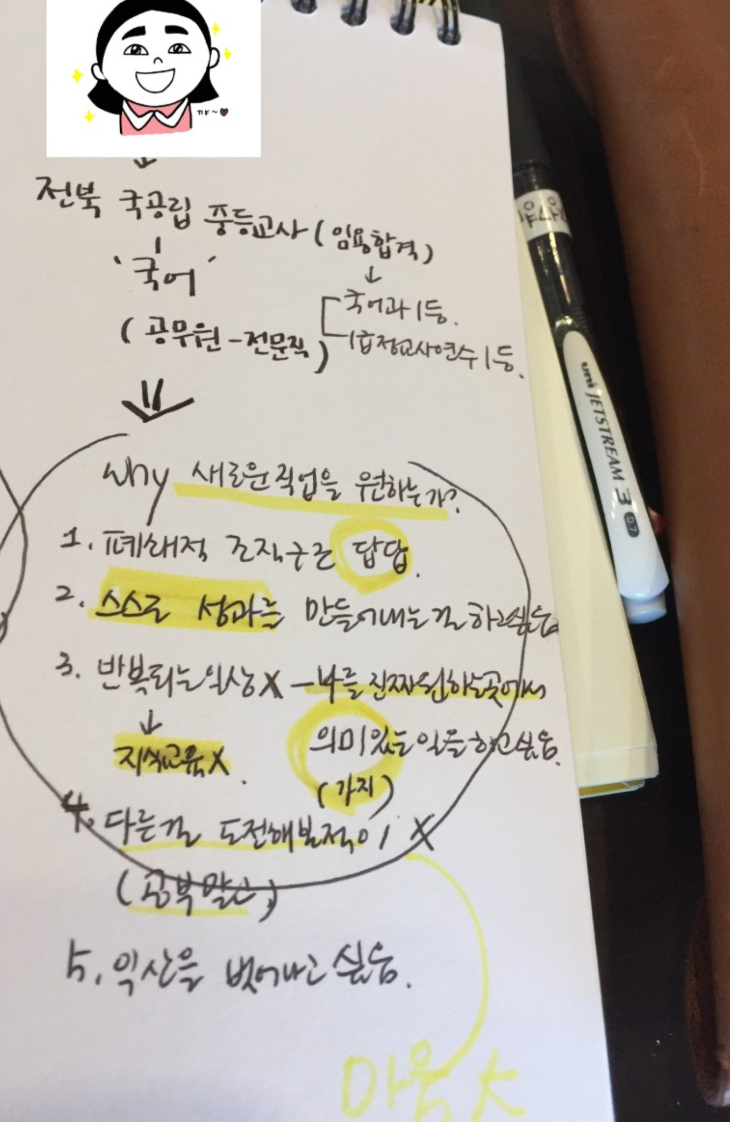 꺄~♥
전북 국공립 중등교사 (임용합격)
'국어'
국어과 1등.
(공무원-전문직)
1급정교사연수 1등.
why 새로운 직업을 원하는가?
1. 폐쇄적 조직구조 답답.
2. 스스로 성과를 만들어내는걸 하고싶음.
3. 반복되는 일상 X - 나를 진짜 원하는곳에서
지식교육 X.
의미있는 일을 하고싶음.
(가치)
4. 다른걸 도전해본적이 X
(공부말고)
5. 익산을 벗어나고 싶음.
마음 大
uni JETSTREAM 3 0.7